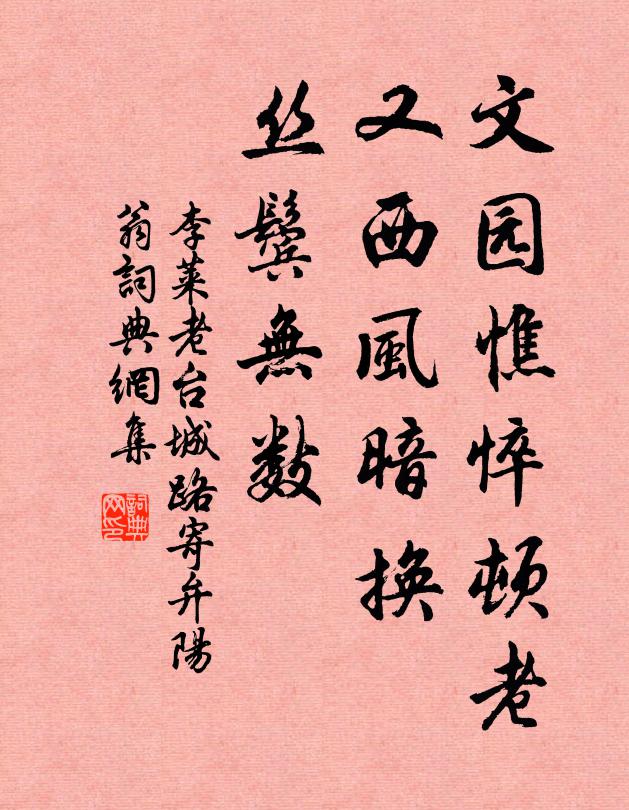 文园憔悴顿老
又西風暗换
丝鬓無数
李莱老台城路寄弁陽
翁詞典網集
詞典
网印